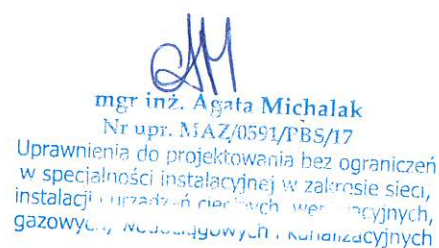 mgr inż. Agata Michalak
Nr upr. MAZ/0591/PBS/17
Uprawnienia do projektowania bez ograniczeń
w specjalności instalacyjnej w zakresie sieci,
instalacji i urządzeń cieplnych, wentylacyjnych,
gazowych, wodociągowych i kanalizacyjnych